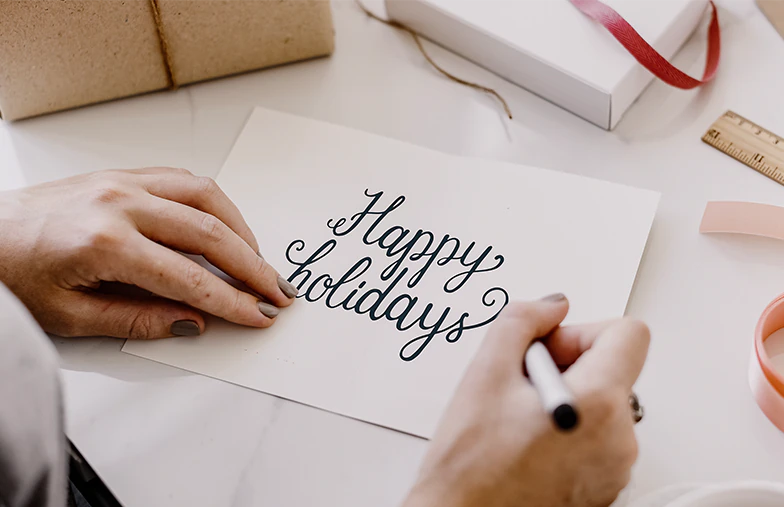 Happy
holidays